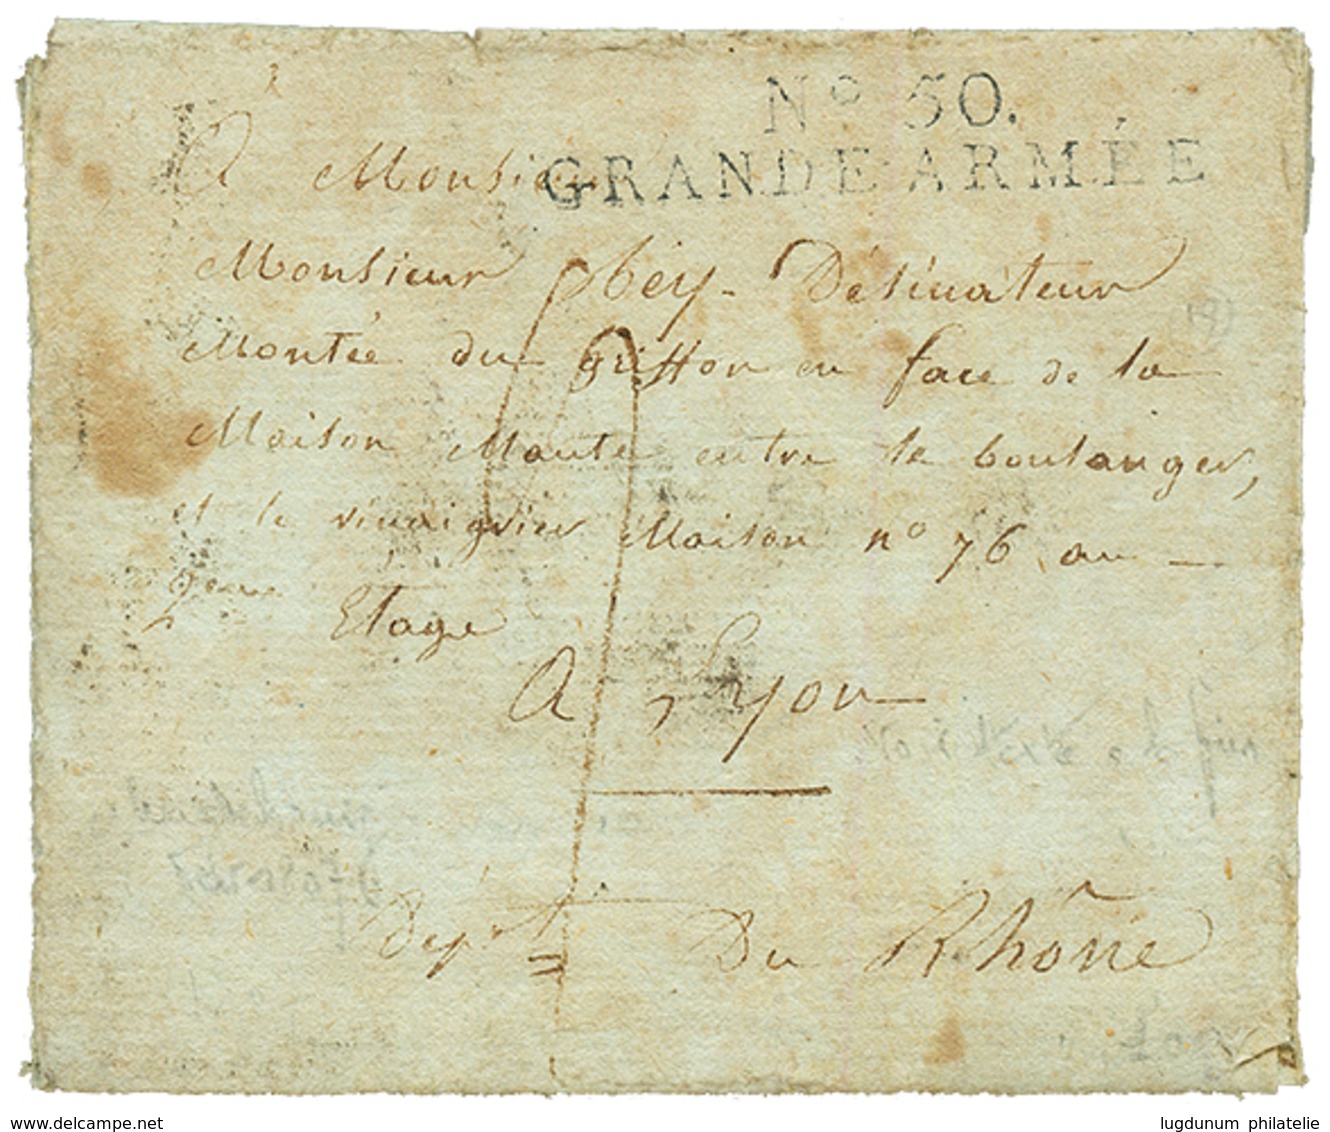 No 50.
GRANDE ARMÉE
A Monsieur
Monsieur obey - Désinateur
Montée du griffon en face de la
Maison Monte entre le boulanger,
et le vinaigrier Maison no 76 au -
2eme Etage
A Lyon
Dept Du Rhône
www.delcampe.net
lugdunum philatelie